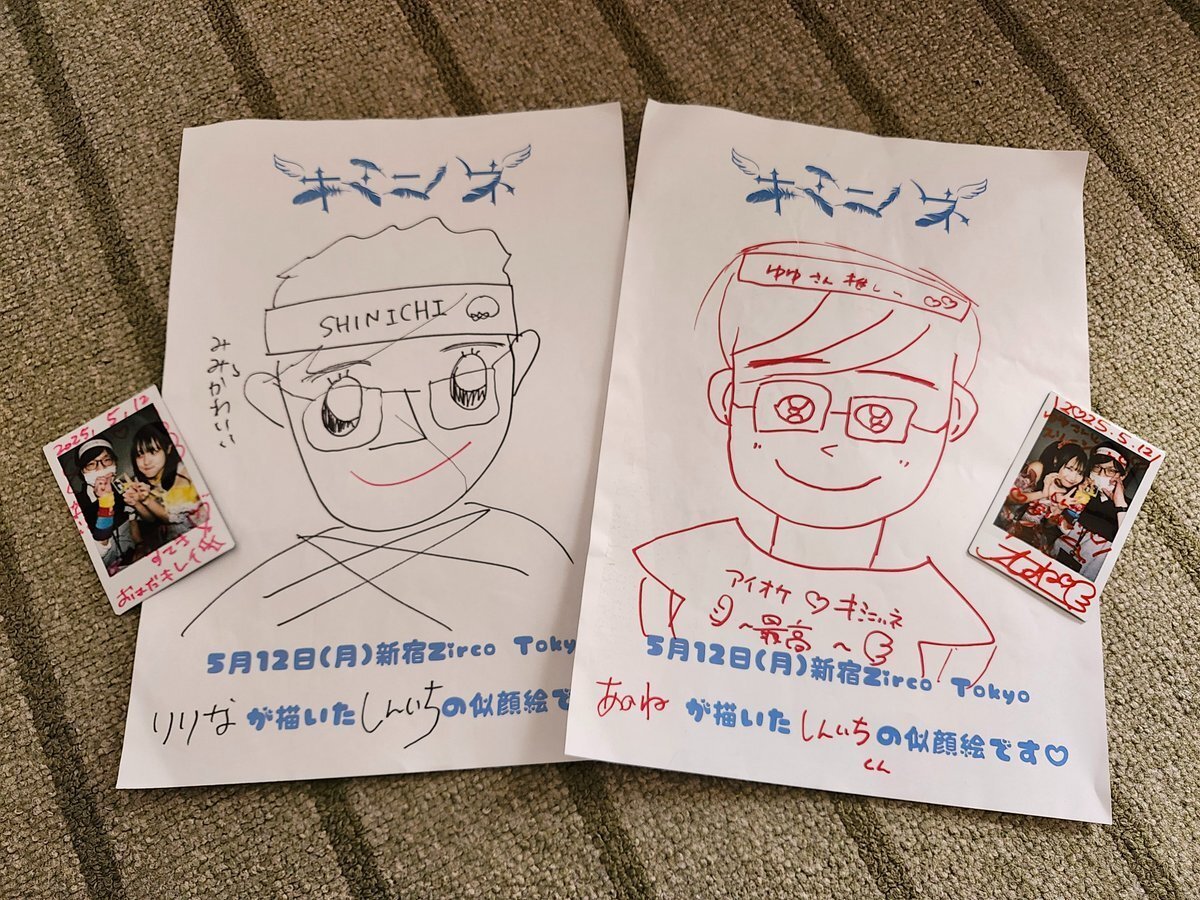 キミニノネ
SHINICHI
みみかわいい
5月12日(月)新宿Zirco Tokyo
りりな が描いた しんいち の似顔絵で
キミニノネ
ゆゆさん推しー
アイオケ♡キミノネ
~最高~
5月12日(月)新宿Zirco Tokyo
あのね が描いた しんいち の似顔絵です♡
くん
2025.5.12
すてき
おはだキレイ
2025.5.12